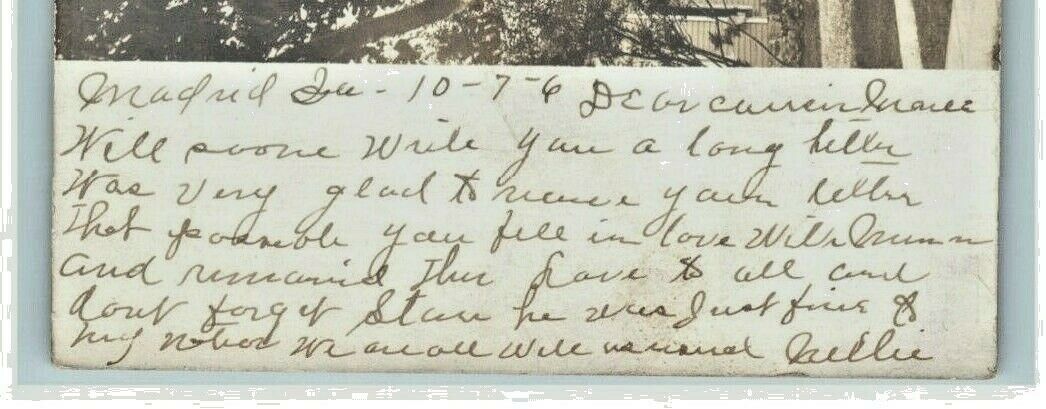 Madrid Ia - 10-7-6 Dear
Will soone Write you a long letter
Was very glad to receive your letter
that possible you fell in love With
and remained Ther Love to all and
dont forget Stan he was Just fine to
my We are all Well Nellie